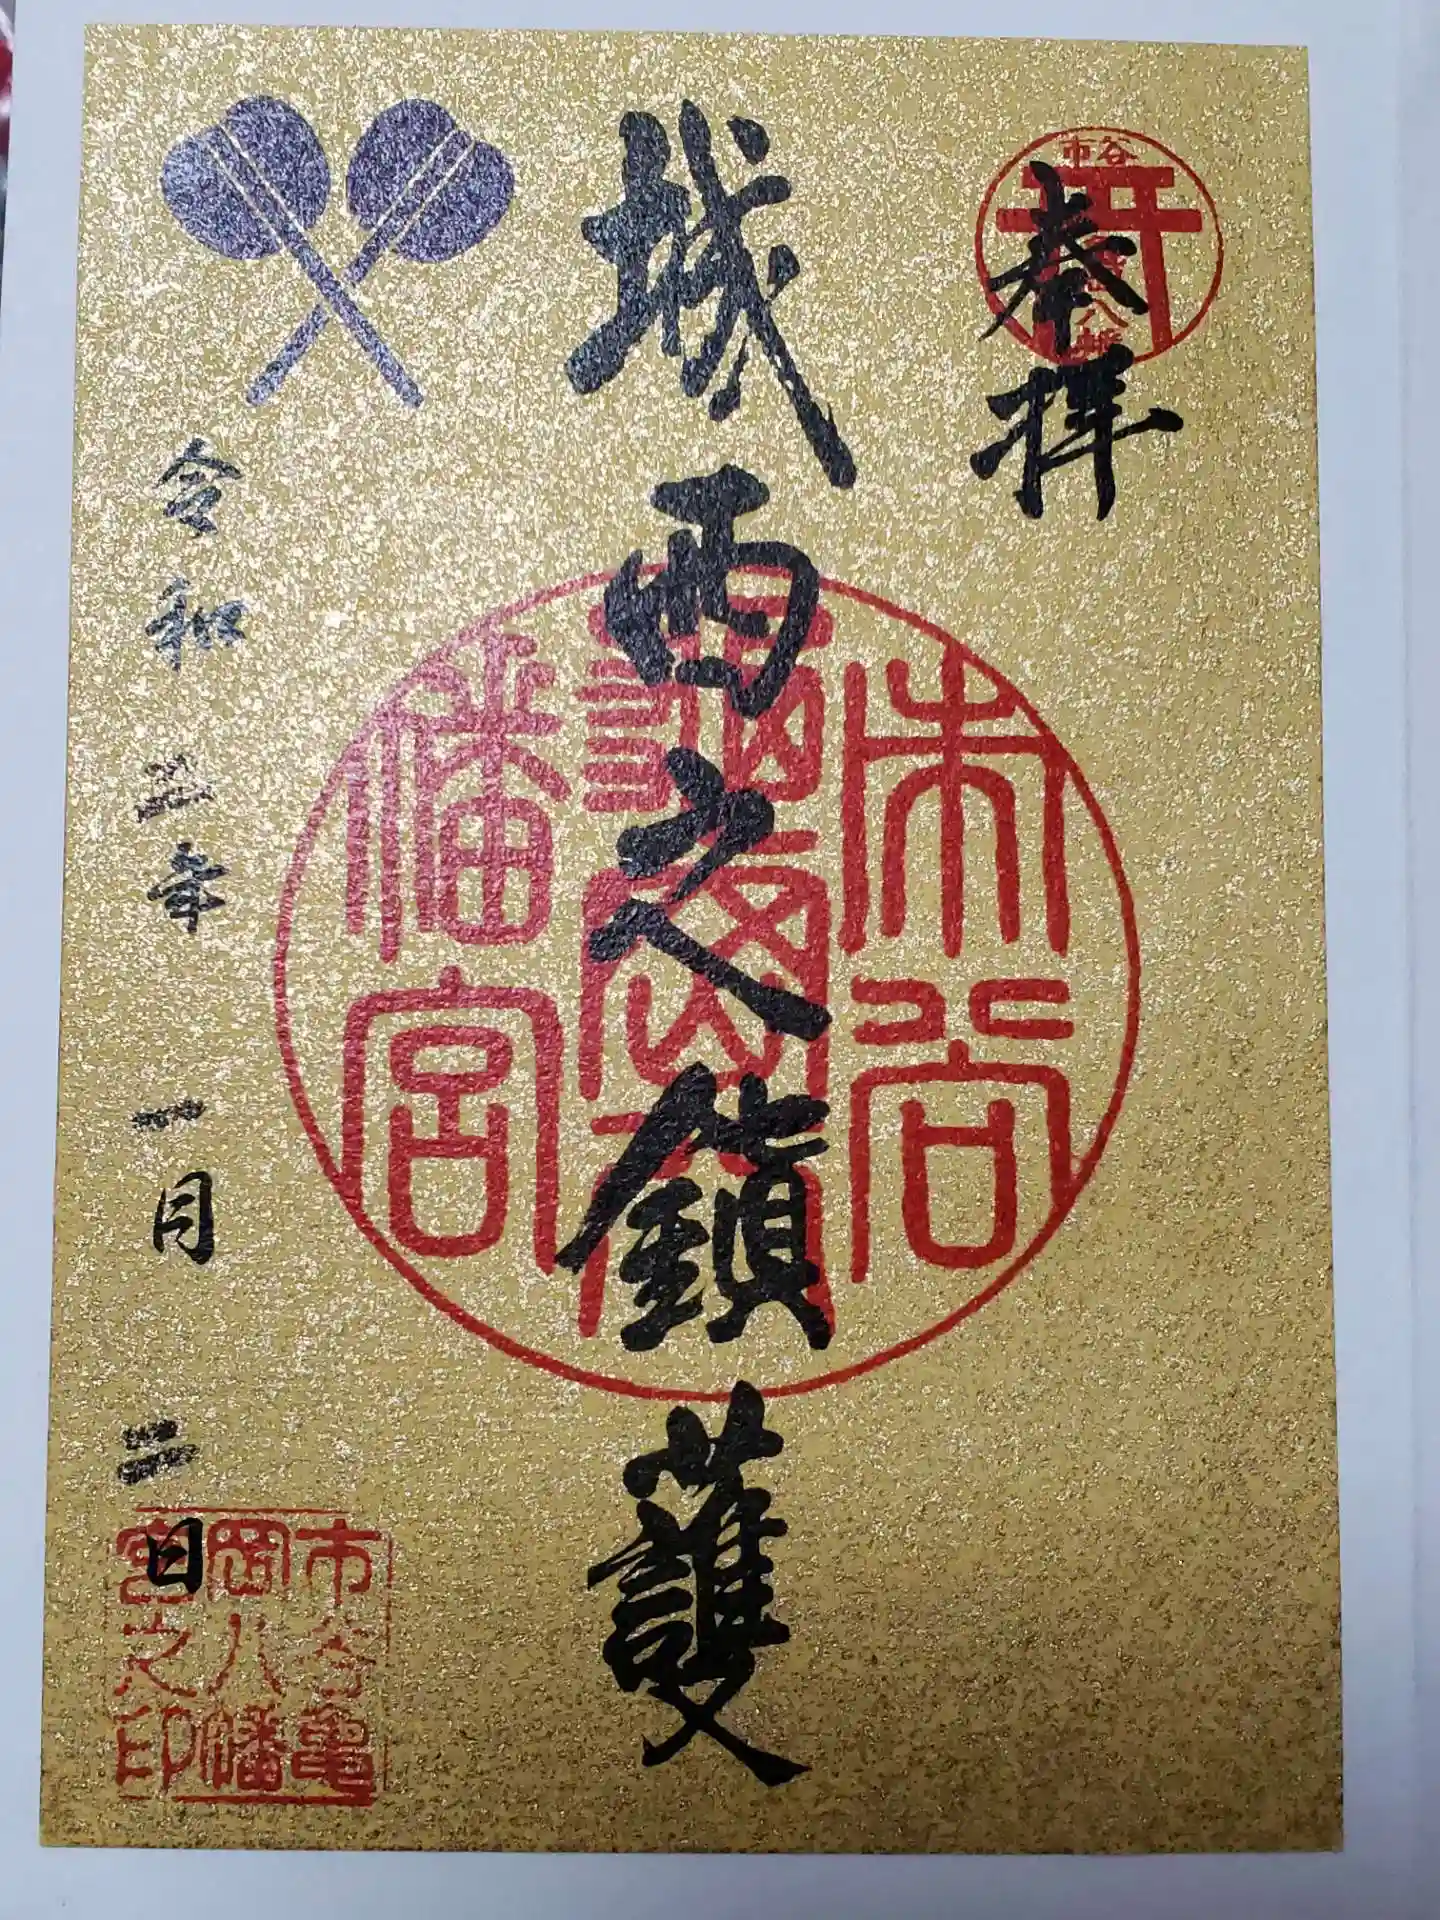 奉拝
市谷
八幡
城西之鎮護
市谷亀岡八幡宮
令和三年一月二日
市谷亀
岡八幡
宮之印